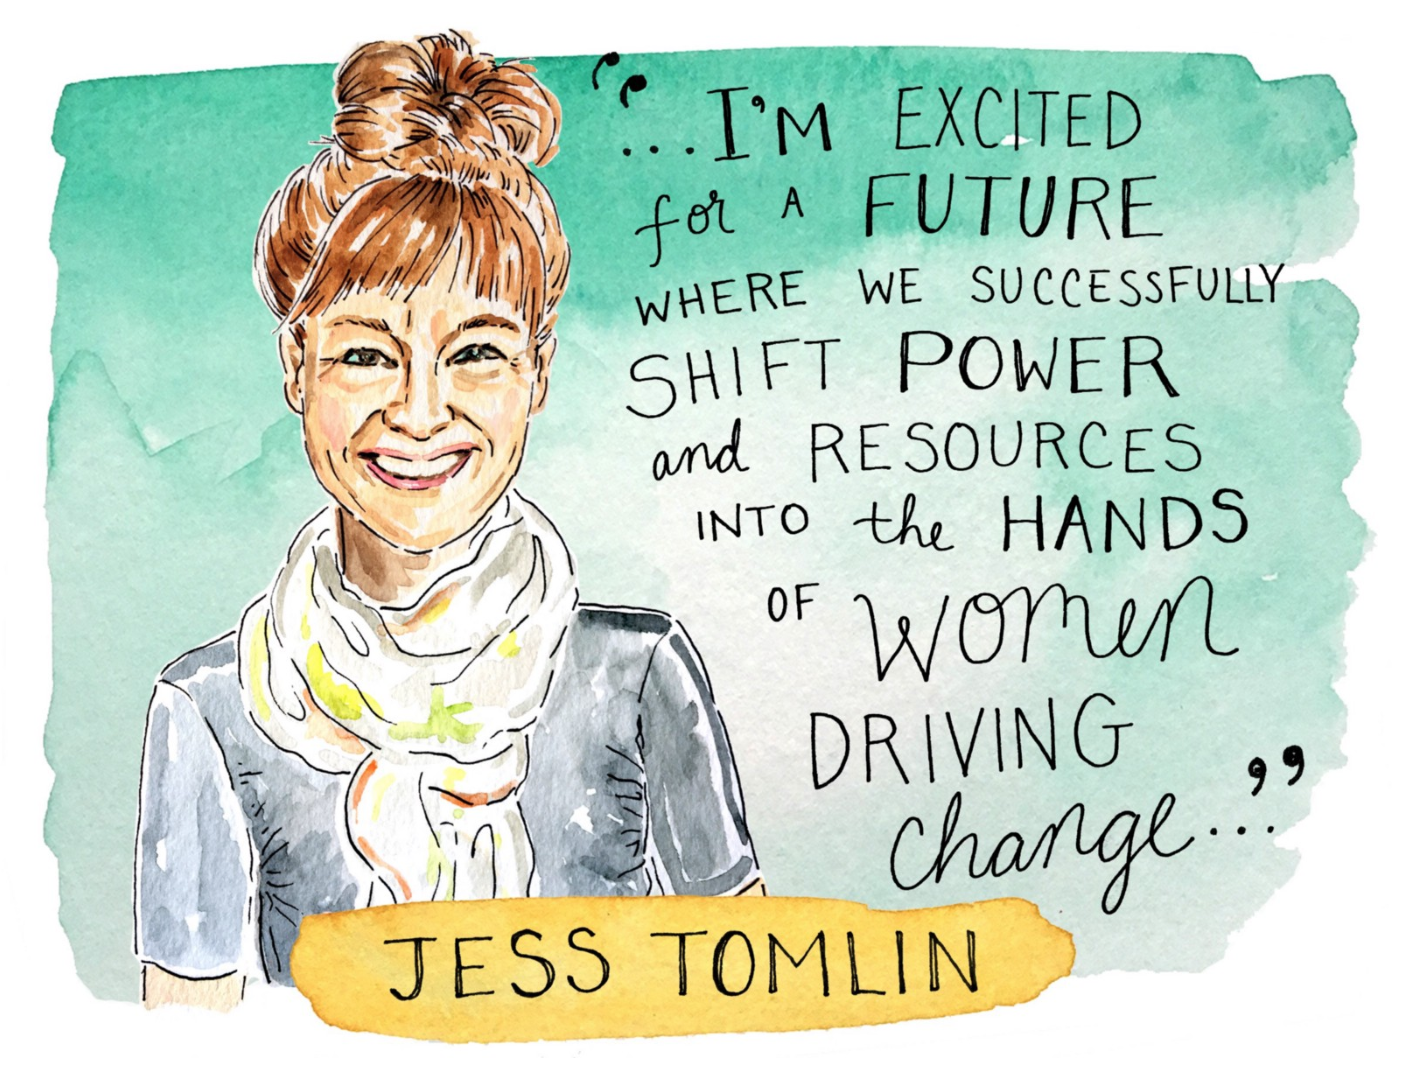 “...I'M EXCITED
for A FUTURE
WHERE WE SUCCESSFULLY
SHIFT POWER
and RESOURCES
INTO the HANDS
OF women
DRIVING
change...”
JESS TOMLIN